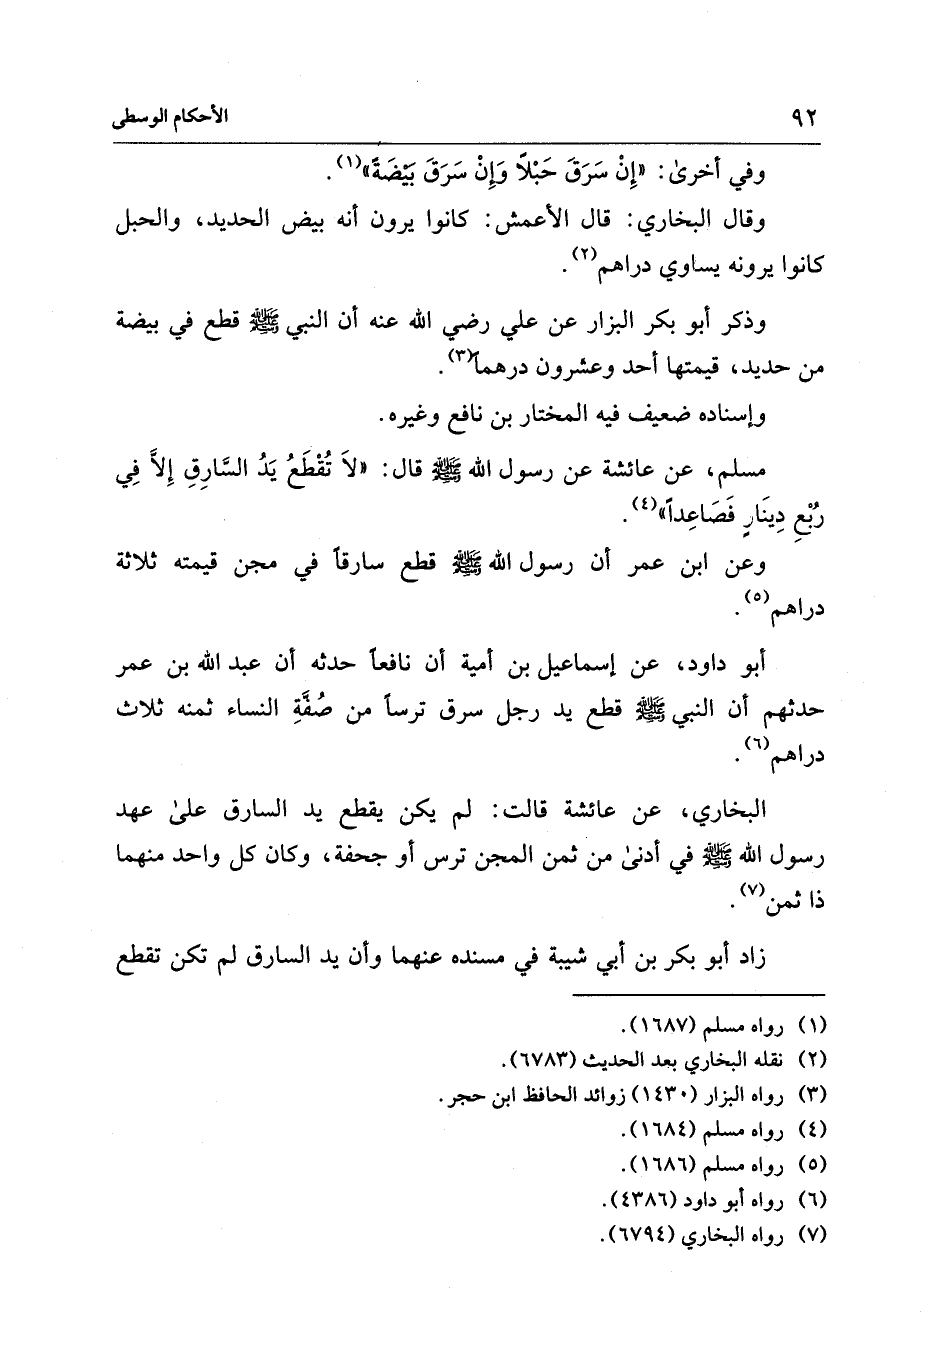 ٩٢ الأحكام الوسطى
وفي أخرىٰ: «إِنْ سَرَقَ حَبْلاً وَإِنْ سَرَقَ بَيْضَةً»(١).
وقال البخاري: قال الأعمش: كانوا يرون أنه بيض الحديد، والحبل
كانوا يرونه يساوي دراهم(٢).
وذكر أبو بكر البزار عن علي رضي الله عنه أن النبي ﷺ قطع في بيضة
من حديد، قيمتها أحد وعشرون درهماً(٣).
وإسناده ضعيف فيه المختار بن نافع وغيره.
مسلم، عن عائشة عن رسول الله ﷺ قال: «لاَ تُقْطَعُ يَدُ السَّارِقِ إِلاَّ فِي
رُبْعِ دِينَارٍ فَصَاعِداً»(٤).
وعن ابن عمر أن رسول الله ﷺ قطع سارقاً في مجن قيمته ثلاثة
دراهم(٥).
أبو داود، عن إسماعيل بن أمية أن نافعاً حدثه أن عبد الله بن عمر
حدثهم أن النبي ﷺ قطع يد رجل سرق ترساً من صُفَّةِ النساء ثمنه ثلاث
دراهم(٦).
البخاري، عن عائشة قالت: لم يكن يقطع يد السارق علىٰ عهد
رسول الله ﷺ في أدنىٰ من ثمن المجن ترس أو جحفة، وكان كل واحد منهما
ذا ثمن(٧).
زاد أبو بكر بن أبي شيبة في مسنده عنهما وأن يد السارق لم تكن تقطع
(١) رواه مسلم (١٦٨٧).
(٢) نقله البخاري بعد الحديث (٦٧٨٣).
(٣) رواه البزار (١٤٣٠) زوائد الحافظ ابن حجر.
(٤) رواه مسلم (١٦٨٤).
(٥) رواه مسلم (١٦٨٦).
(٦) رواه أبو داود (٤٣٨٦).
(٧) رواه البخاري (٦٧٩٤).